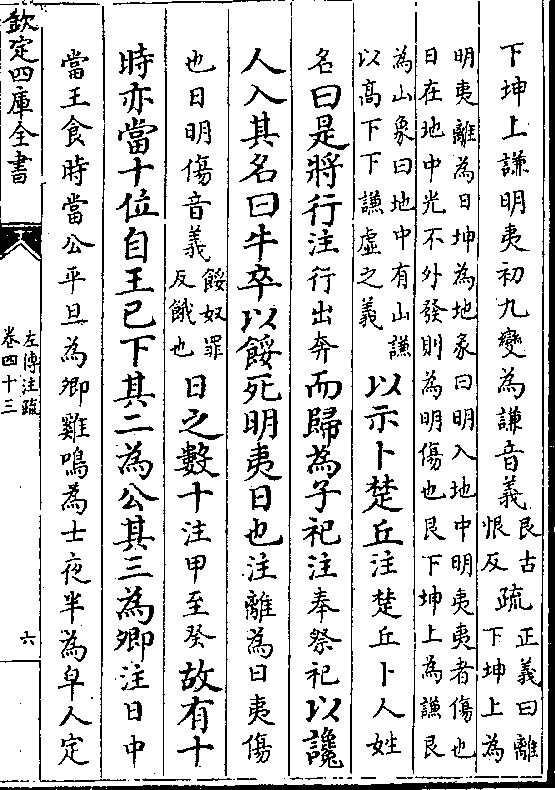 下坤上謙明夷初九變為謙音義艮古恨反疏正義曰離下坤上為
明夷離為日坤為地象曰明入地中明夷夷者傷也
日在地中光不外發則為明傷也艮下坤上為謙艮
為山象曰地中有山謙
以高下下謙虛之義以示卜楚丘注楚丘卜人姓
名曰是將行注行出奔而歸為子祀注奉祭祀以讒
人入其名曰牛卒以餒死明夷日也注離為日夷傷
也日明傷音義餒奴罪反餓也日之數十注甲至癸故有十
時亦當十位自王已下其二為公其三為卿注日中
當王食時當公平旦為卿雞鳴為士夜半為皁人定
欽定四庫全書
左傳注疏
卷四十三
六